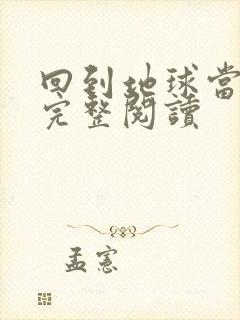 回到地球當
完整閱讀
孟憲